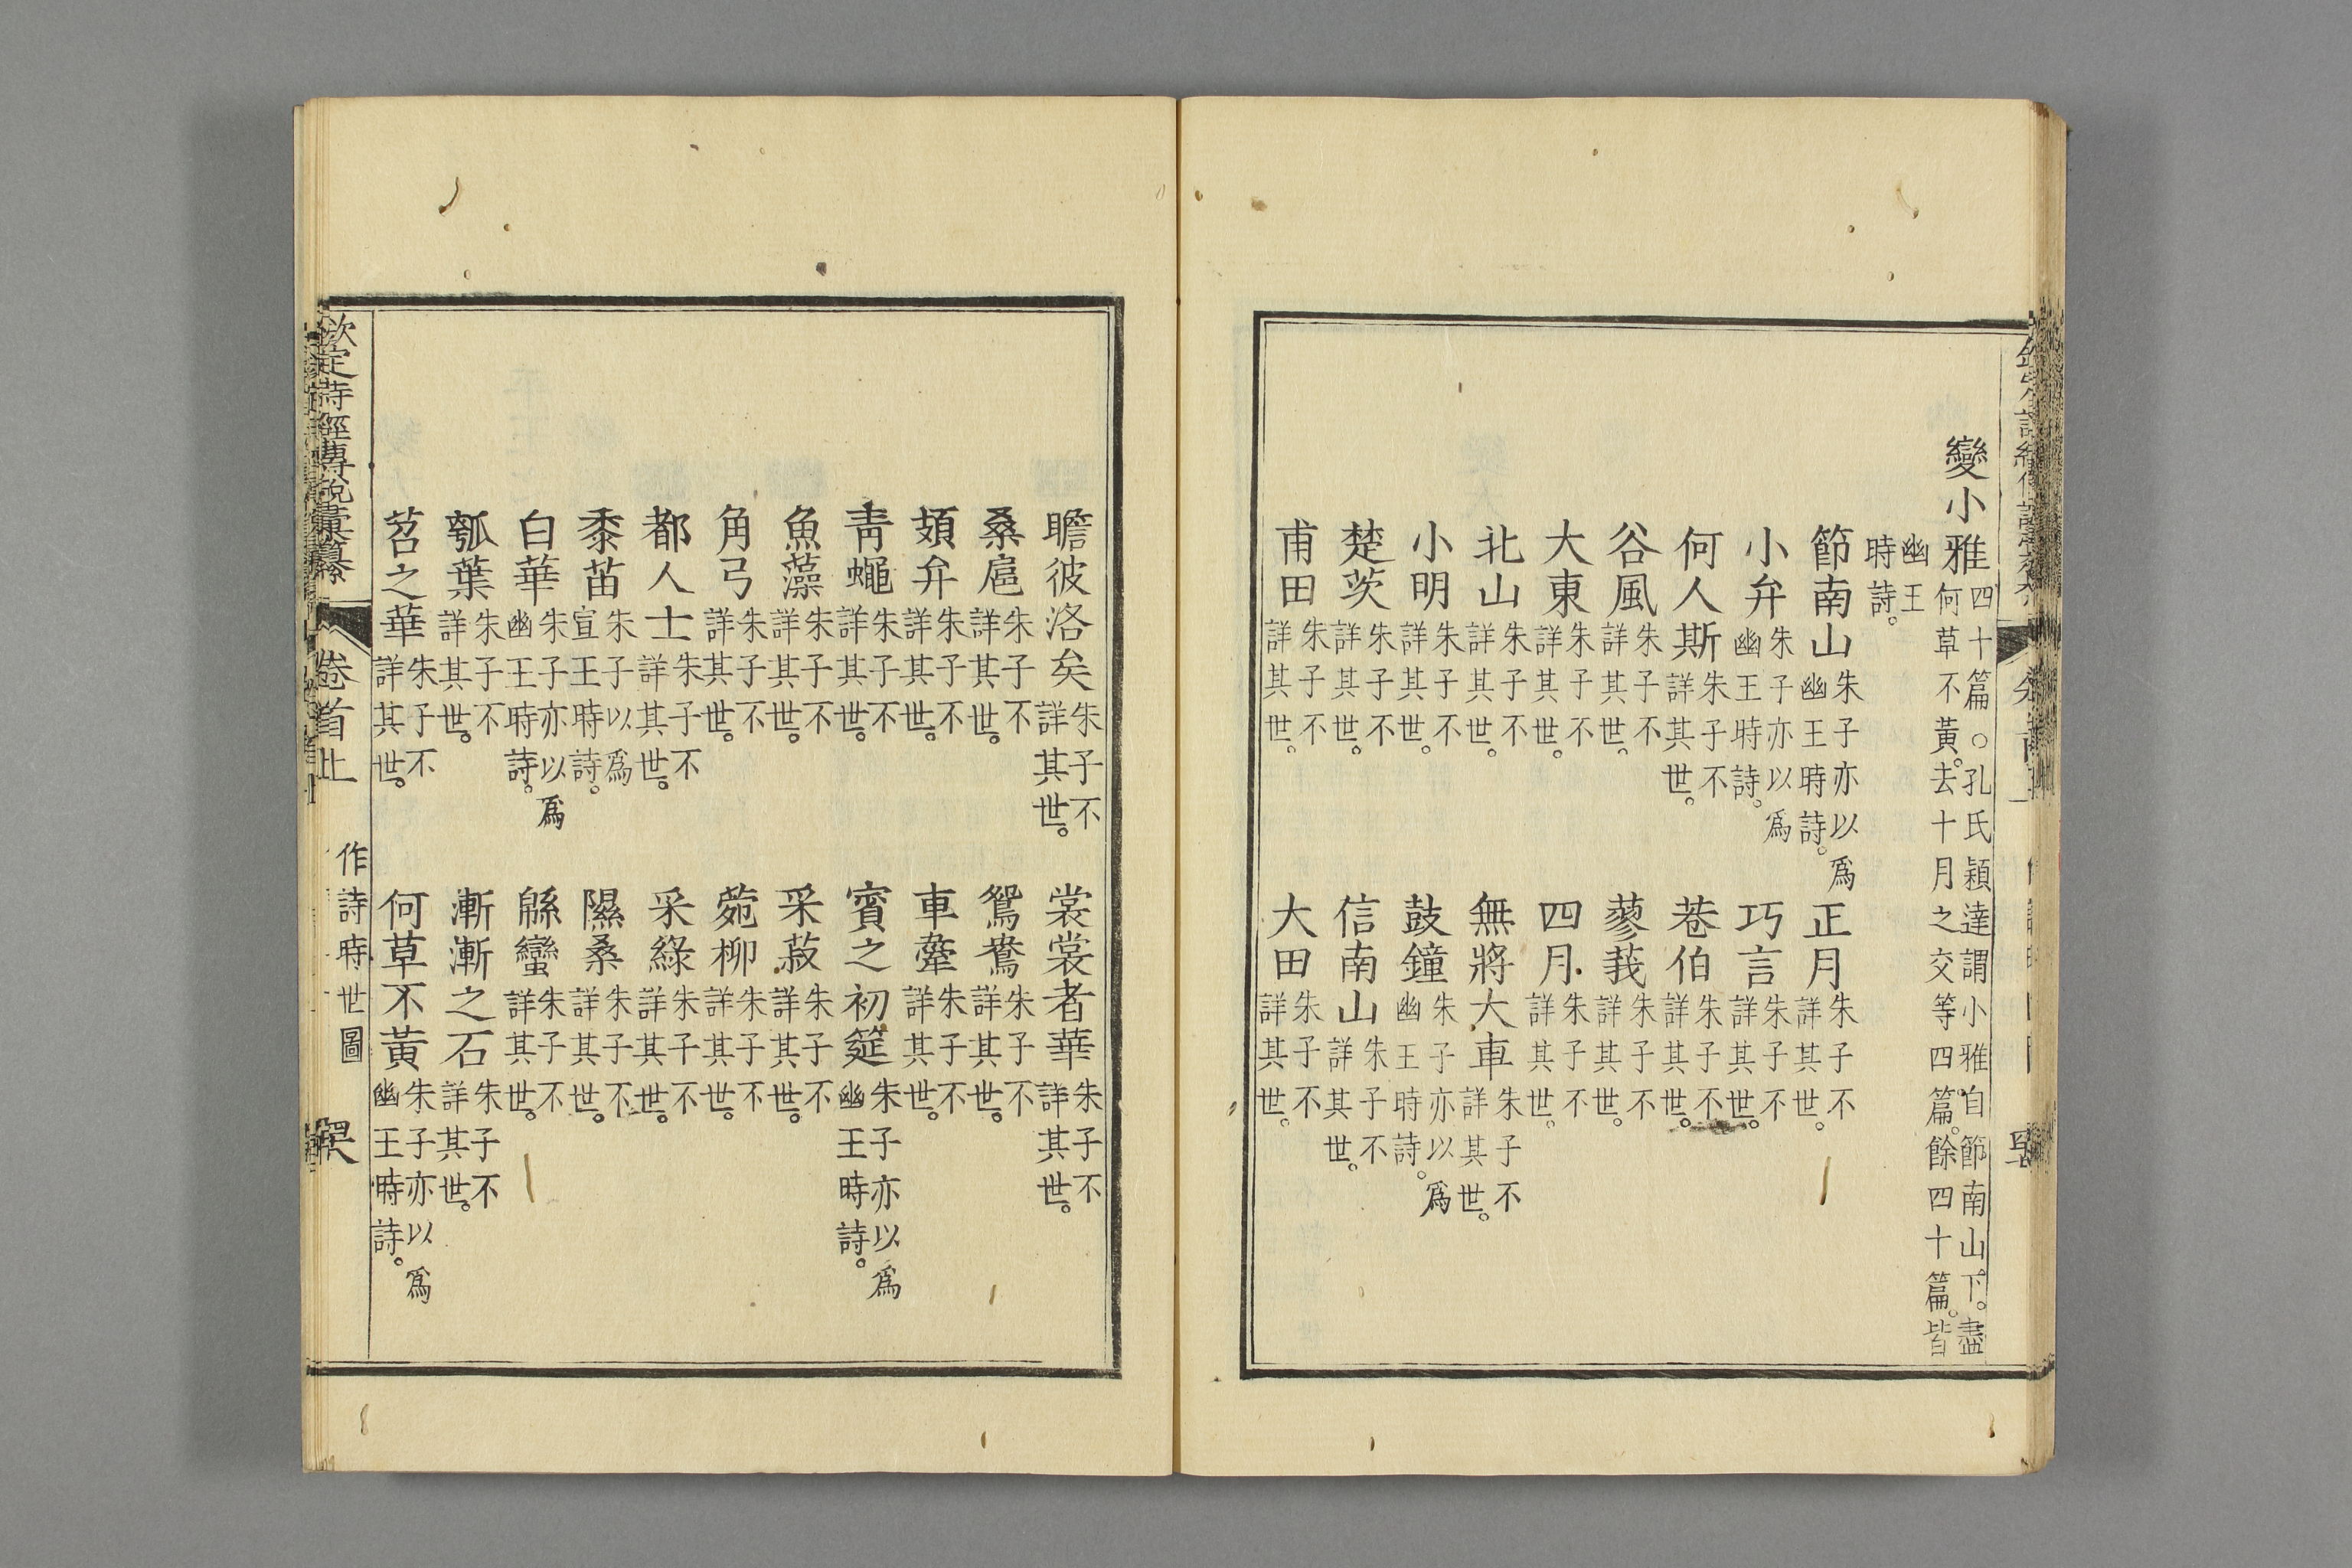 變小雅四十篇。○孔氏穎達謂小雅自節南山下。盡
何草不黃。去十月之交等四篇。餘四十篇。皆
幽王
時詩。
節南山朱子亦以爲幽王時詩。 正月朱子不詳其世。
小弁朱子亦以爲幽王時詩。 巧言朱子不詳其世。
何人斯朱子不詳其世。 巷伯朱子不詳其世。
谷風朱子不詳其世。 蓼莪朱子不詳其世。
大東朱子不詳其世。 四月朱子不詳其世。
北山朱子不詳其世。 無將大車朱子不詳其世。
小明朱子不詳其世。 鼓鐘朱子亦以爲幽王時詩。
楚茨朱子不詳其世。 信南山朱子不詳其世。
甫田朱子不詳其世。 大田朱子不詳其世。
瞻彼洛矣朱子不詳其世。 裳裳者華朱子不詳其世。
桑扈朱子不詳其世。 鴛鴦朱子不詳其世。
頍弁朱子不詳其世。 車舝朱子不詳其世。
靑蠅朱子不詳其世。 賓之初筵朱子亦以爲幽王時詩。
魚藻朱子不詳其世。 采菽朱子不詳其世。
角弓朱子不詳其世。 菀柳朱子不詳其世。
都人士朱子不詳其世。 采綠朱子不詳其世。
黍苗朱子以爲宣王時詩。 隰桑朱子不詳其世。
白華朱子亦以爲幽王時詩。 緜蠻朱子不詳其世。
瓠葉朱子不詳其世。 漸漸之石朱子不詳其世。
苕之華朱子不詳其世。 何草不黃朱子亦以爲幽王時詩。
欽定詩經傳說彙纂 卷首上 作詩時世圖